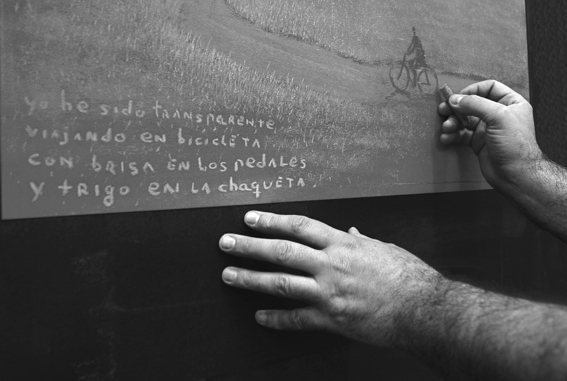 yo he sido transparente
viajando en bicicleta
con brisa en los pedales
y trigo en la chaqueta.